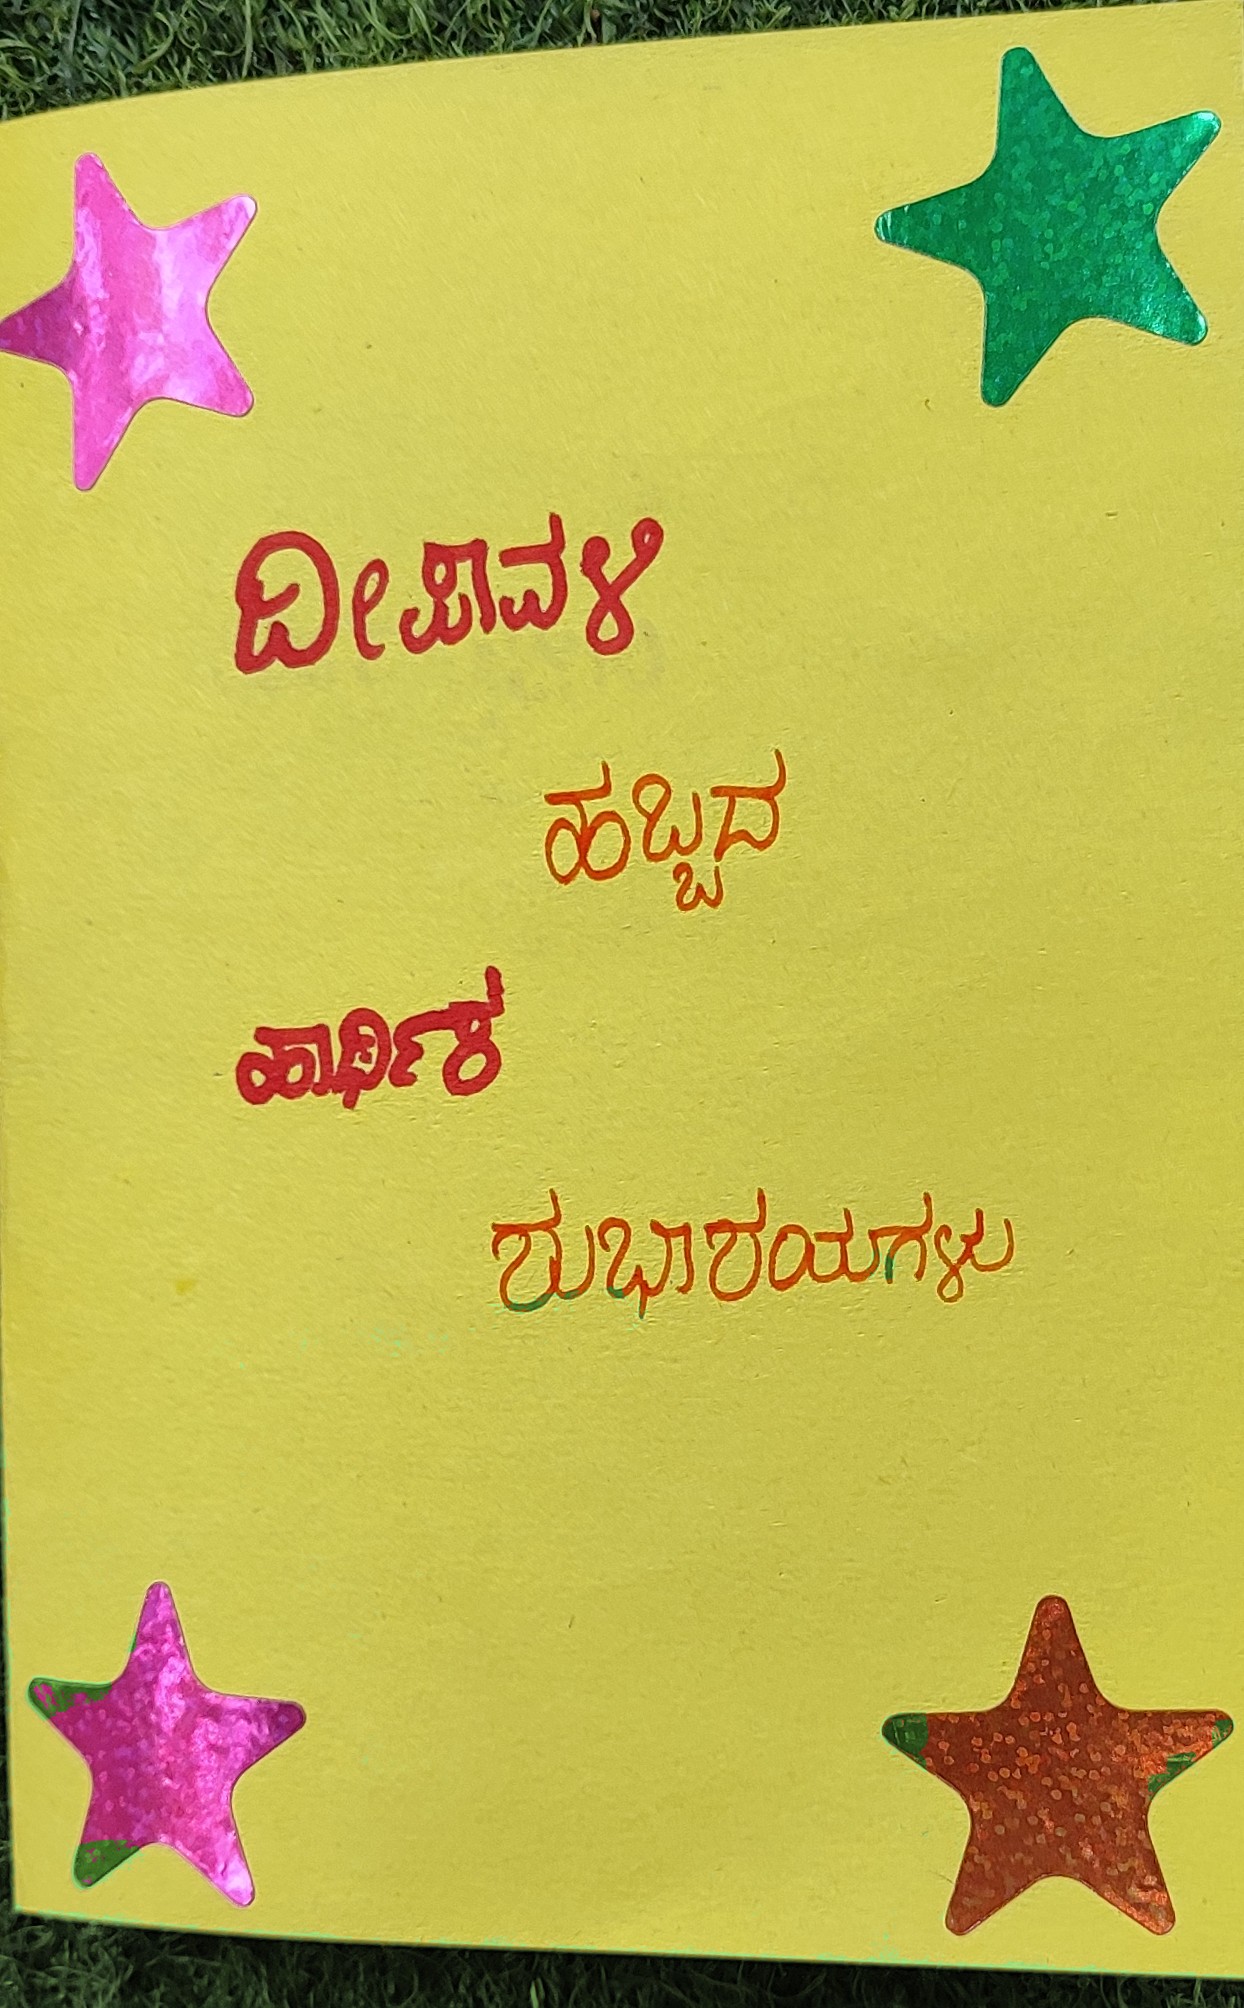 ದೀಪಾವಳಿ
ಹಬ್ಬದ
ಹಾರ್ಥಿಕ
ಶುಭಾಶಯಗಳು